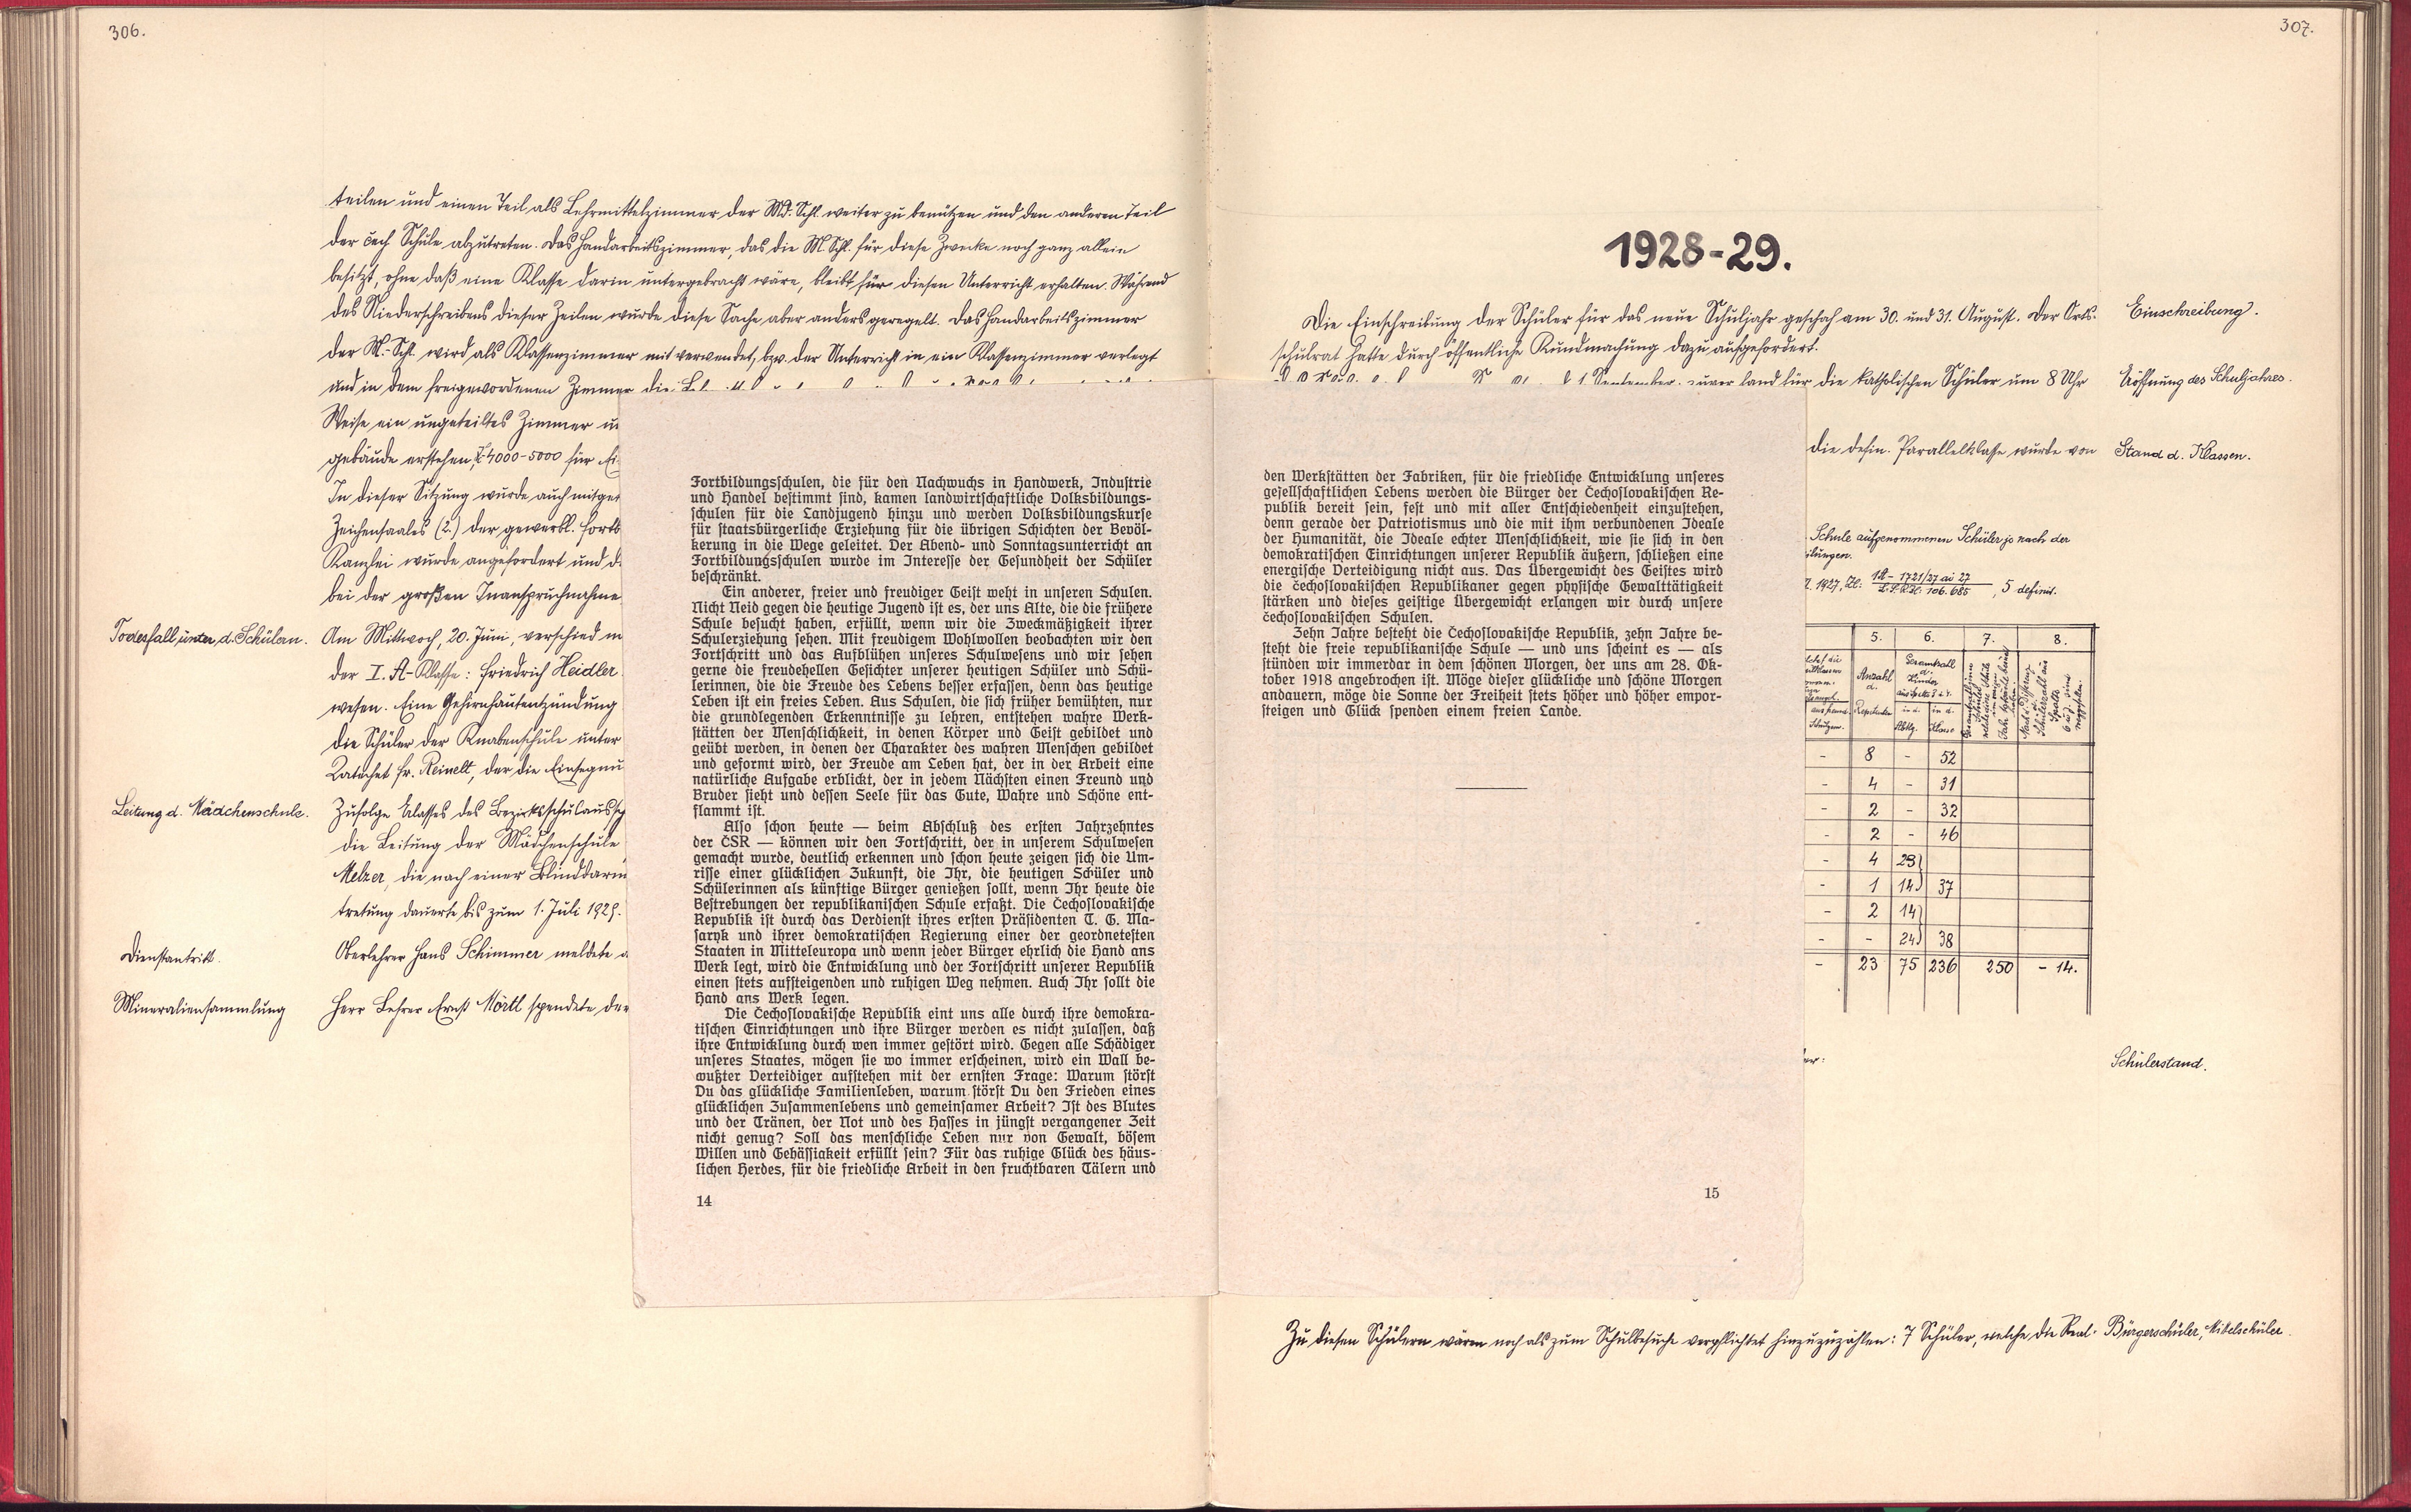 306.
teilen und einen Teil als Lehrmittelzimmer der Md. Schl. weiter zu benützen und den anderen Teil
der čech. Schule abzutreten. Das Handarbeitszimmer, das die M. Schl. für diese Zwecke noch ganz allein
besitzt, ohne daß eine Klasse darin untergebracht wäre, bleibt für diesen Unterricht erhalten. Während
des Niederschreibens dieser Zeilen wurde diese Sache aber anders geregelt. Das Handarbeitszimmer
der M.-Schl. wird als Klassenzimmer mitverwendet, bzw. der Unterricht in ein Klassenzimmer verlegt
und in dem freigewordenen Zimmer die
Weise ein ungeteiltes Zimmer
gebäude erstehen, K 4000-5000 für
In dieser Sitzung wurde auch
Zeichensaales (2.) der gewerbl.
Kanzlei wurde angefordert und
bei der großen Inanspruchnahme
Todesfall unter d. Schülern.
Am Mittwoch, 20. Juni, verschied
der I. A-Klasse: Friedrich Heidler
wesen. Eine Gehirnhautentzündung
die Schüler der Knabenschule unter
Katechet Fr. Reinelt, der die
Leitung d. Mädchenschule.
Zufolge Erlasses des
die Leitung der Mädchenschule
Melzer, die nach einer
tretung dauerte bis zum 1. Juli 1928.
Dienstantritt.
Oberlehrer Hans Schimmer meldete
Mineraliensammlung
Herr Lehrer Ernst Mörtl spendete der
Fortbildungsschulen, die für den Nachwuchs in Handwerk, Industrie
und Handel bestimmt sind, kamen landwirtschaftliche Volksbildungs-
schulen für die Landjugend hinzu und werden Volksbildungskurse
für staatsbürgerliche Erziehung für die übrigen Schichten der Bevöl-
kerung in die Wege geleitet. Der Abend- und Sonntagsunterricht an
Fortbildungsschulen wurde im Interesse der Gesundheit der Schüler
beschränkt.
Ein anderer, freier und freudiger Geist weht in unseren Schulen.
Nicht Neid gegen die heutige Jugend ist es, der uns Alte, die die frühere
Schule besucht haben, erfüllt, wenn wir die Zweckmäßigkeit ihrer
Schulerziehung sehen. Mit freudigem Wohlwollen beobachten wir den
Fortschritt und das Aufblühen unseres Schulwesens und wir sehen
gerne die freudehellen Gesichter unserer heutigen Schüler und Schü-
lerinnen, die die Freude des Lebens besser erfassen, denn das heutige
Leben ist ein freies Leben. Aus Schulen, die sich früher bemühten, nur
die grundlegenden Erkenntnisse zu lehren, entstehen wahre Werk-
stätten der Menschlichkeit, in denen Körper und Geist gebildet und
geübt werden, in denen der Charakter des wahren Menschen gebildet
und geformt wird, der Freude am Leben hat, der in der Arbeit eine
natürliche Aufgabe erblickt, der in jedem Nächsten einen Freund und
Bruder sieht und dessen Seele für das Gute, Wahre und Schöne ent-
flammt ist.
Also schon heute — beim Abschluß des ersten Jahrzehntes
der ČSR — können wir den Fortschritt, der in unserem Schulwesen
gemacht wurde, deutlich erkennen und schon heute zeigen sich die Um-
risse einer glücklichen Zukunft, die Ihr, die heutigen Schüler und
Schülerinnen als künftige Bürger genießen sollt, wenn Ihr heute die
Bestrebungen der republikanischen Schule erfaßt. Die Čechoslovakische
Republik ist durch das Verdienst ihres ersten Präsidenten T. G. Ma-
saryk und ihrer demokratischen Regierung einer der geordnetesten
Staaten in Mitteleuropa und wenn jeder Bürger ehrlich die Hand ans
Werk legt, wird die Entwicklung und der Fortschritt unserer Republik
einen stets aufsteigenden und ruhigen Weg nehmen. Auch Ihr sollt die
Hand ans Werk legen.
Die Čechoslovakische Republik eint uns alle durch ihre demokra-
tischen Einrichtungen und ihre Bürger werden es nicht zulassen, daß
ihre Entwicklung durch wen immer gestört wird. Gegen alle Schädiger
unseres Staates, mögen sie wo immer erscheinen, wird ein Wall be-
wußter Verteidiger aufstehen mit der ernsten Frage: Warum störst
Du das glückliche Familienleben, warum störst Du den Frieden eines
glücklichen Zusammenlebens und gemeinsamer Arbeit? Ist des Blutes
und der Tränen, der Not und des Hasses in jüngst vergangener Zeit
nicht genug? Soll das menschliche Leben nur von Gewalt, bösem
Willen und Gehässigkeit erfüllt sein? Für das ruhige Glück des häus-
lichen Herdes, für die friedliche Arbeit in den fruchtbaren Tälern und
14
307.
1928-29.
Die Einschreibung der Schüler für das neue Schuljahr geschah am 30. und 31. August. Der Orts-
schulrat hatte durch öffentliche Kundmachung dazu aufgefordert.
Einschreibung.
1. September. zuvor fand für die katholischen Schüler um 8 Uhr
Eröffnung des Schuljahres.
die defin. Parallelklasse wurde von
Stand d. Klassen.
Schule aufgenommenen Schüler je nach der
ilungen.
1927, Zl. 5 definit.
den Werkstätten der Fabriken, für die friedliche Entwicklung unseres
gesellschaftlichen Lebens werden die Bürger der Čechoslovakischen Re-
publik bereit sein, fest und mit aller Entschiedenheit einzustehen,
denn gerade der Patriotismus und die mit ihm verbundenen Ideale
der Humanität, die Ideale echter Menschlichkeit, wie sie sich in den
demokratischen Einrichtungen unserer Republik äußern, schließen eine
energische Verteidigung nicht aus. Das Übergewicht des Geistes wird
die čechoslovakischen Republikaner gegen physische Gewalttätigkeit
stärken und dieses geistige Übergewicht erlangen wir durch unsere
čechoslovakischen Schulen.
Zehn Jahre besteht die Čechoslovakische Republik, zehn Jahre be-
steht die freie republikanische Schule — und uns scheint es — als
stünden wir immerdar in dem schönen Morgen, der uns am 28. Ok-
tober 1918 angebrochen ist. Möge dieser glückliche und schöne Morgen
andauern, möge die Sonne der Freiheit stets höher und höher empor-
steigen und Glück spenden einem freien Lande.
15
5. 6. 7. 8.
Anzahl d. Repetenten
Gesamtzahl d. Kinder
in d. Abtlg. in d. Klasse
- 8 - 52
- 4 - 31
- 2 - 32
- 2 - 46
- 4 23
- 1 14 37
- 2 14
- - 24 38
- 23 75 236 250 - 14.
Schülerstand.
Zu diesen Schülern wären noch als zum Schulbesuche verpflichtet hinzuzuzählen: 7 Schüler, welche die Real-
Bürgerschüler, Mittelschüler.